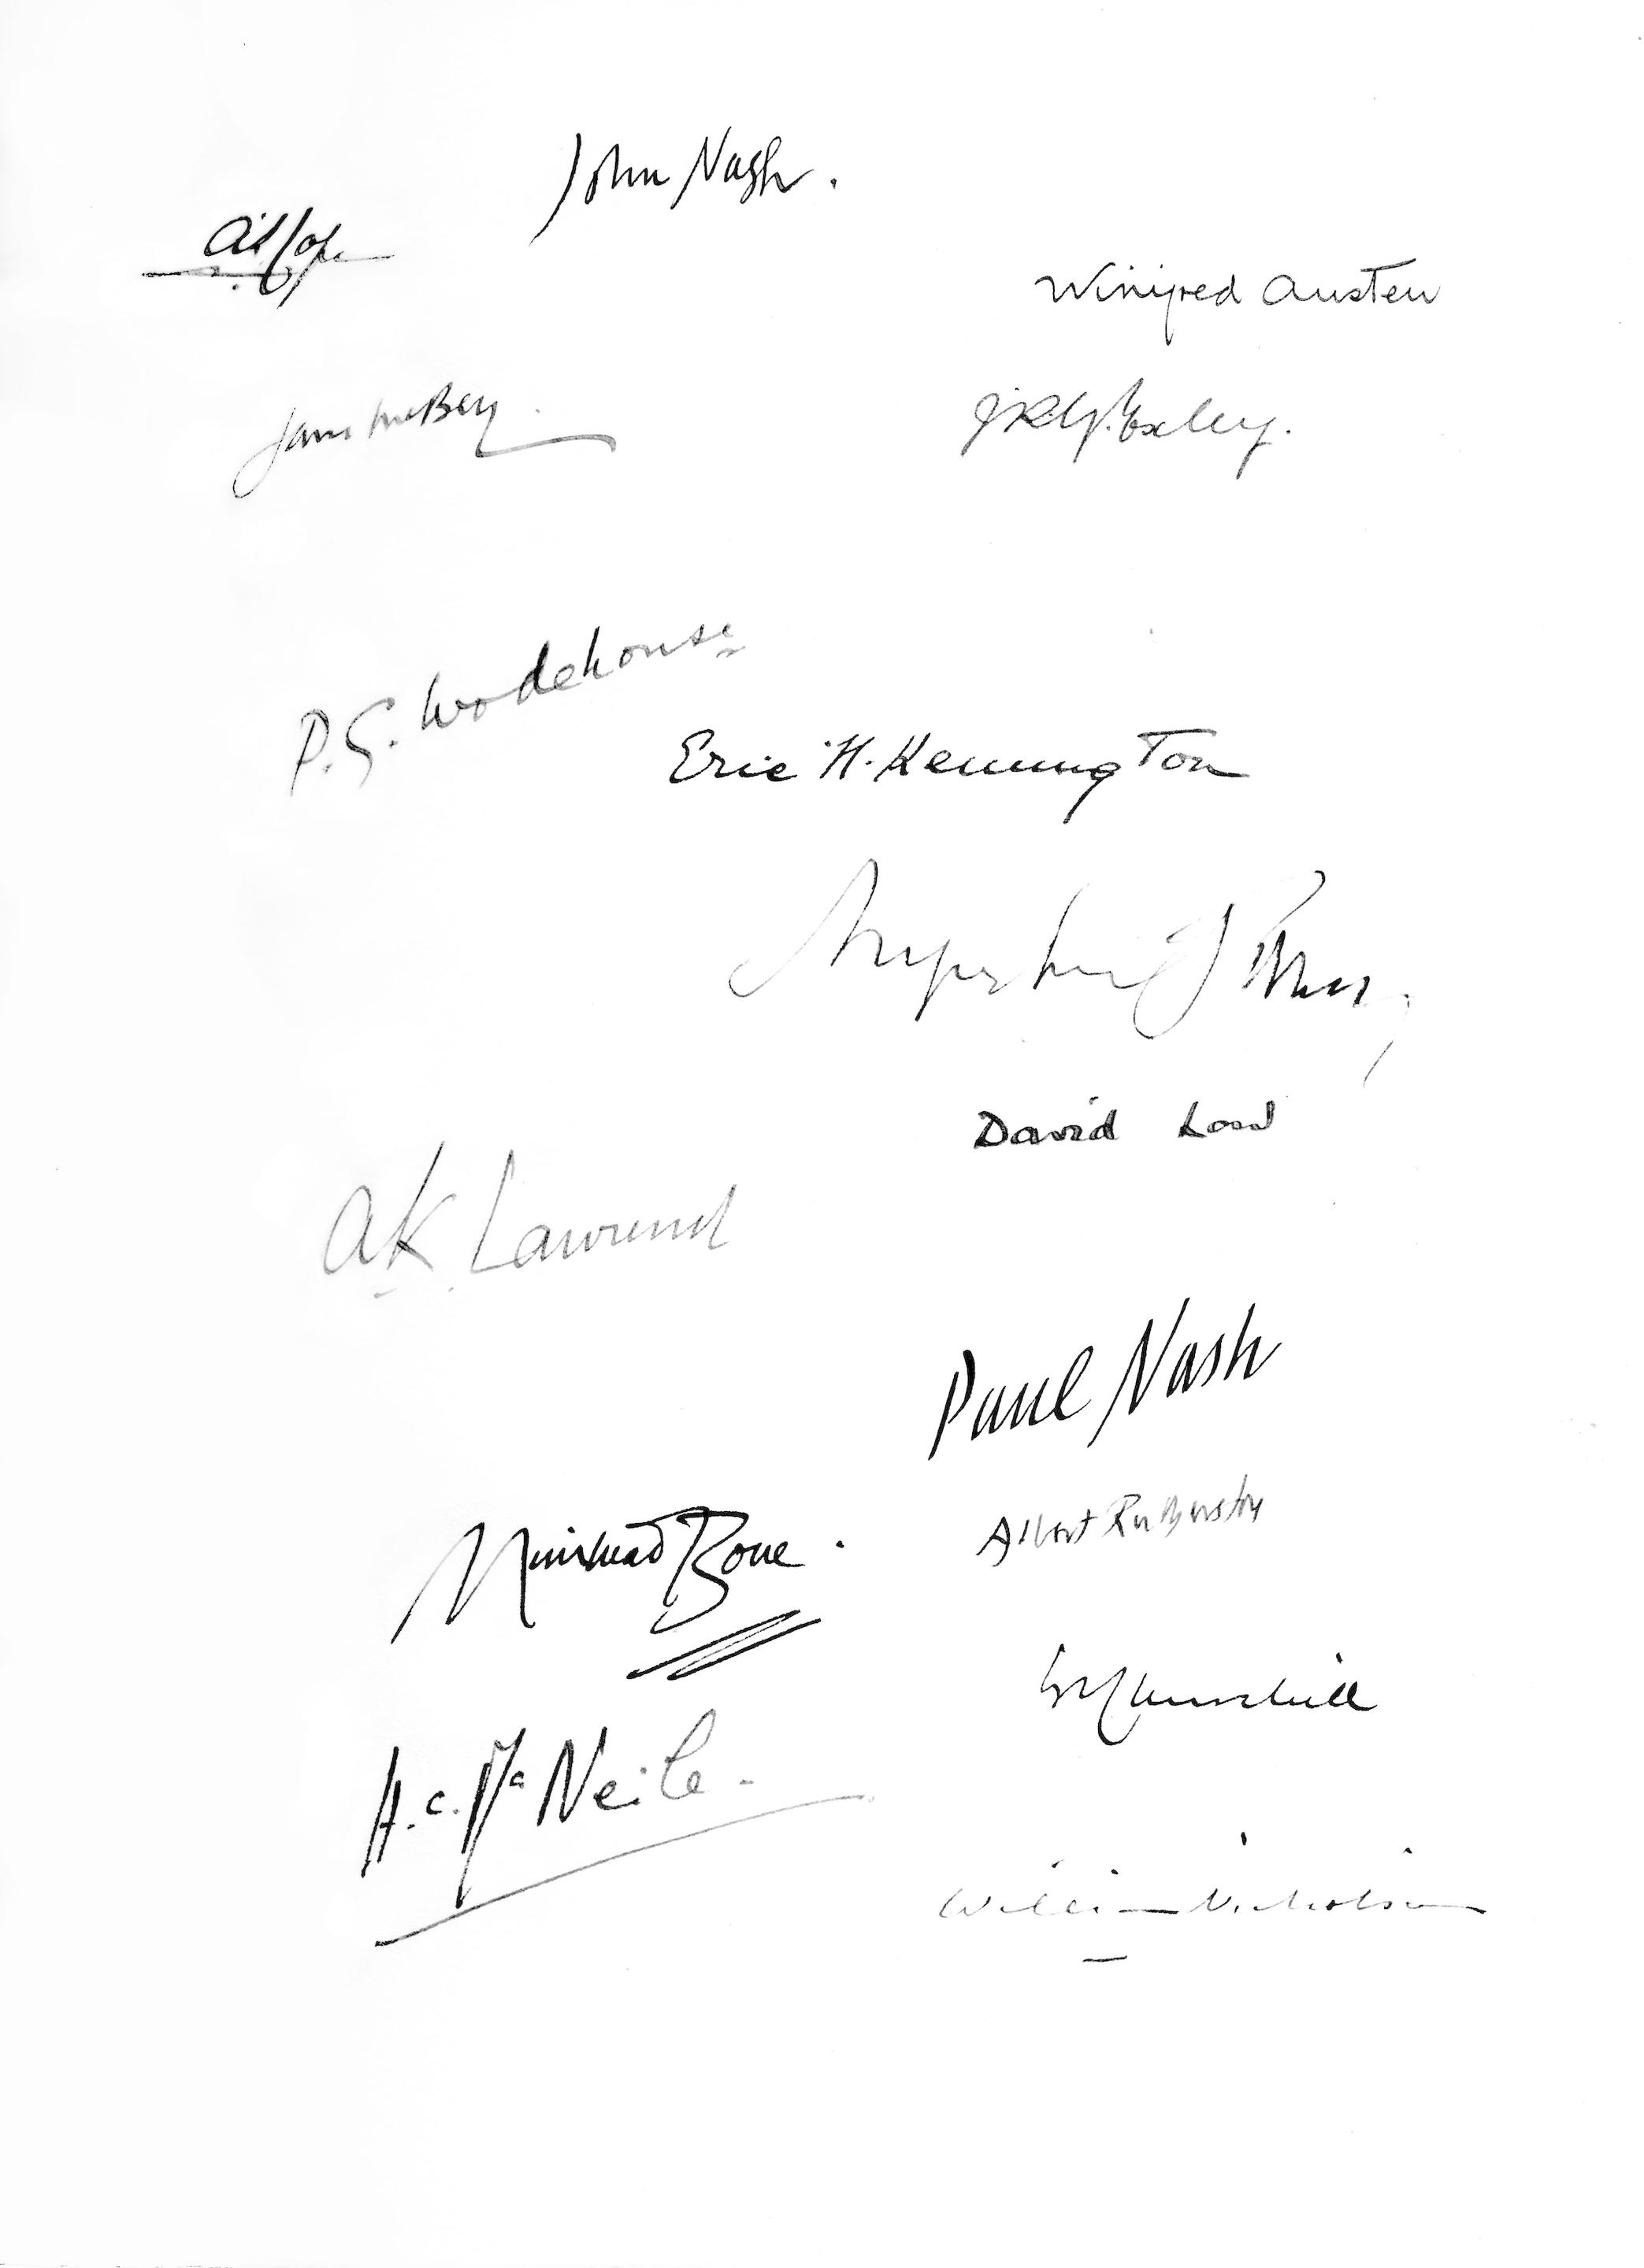 John Nash.
Winifred Austen
James McBey.
J.R.G. Exley.
P.G. Wodehouse
Eric H. Kennington
David Low
A K Lawrence
Paul Nash
Albert Rutherston
Muirhead Bone.
H.C. McNeile.
William Nicholson